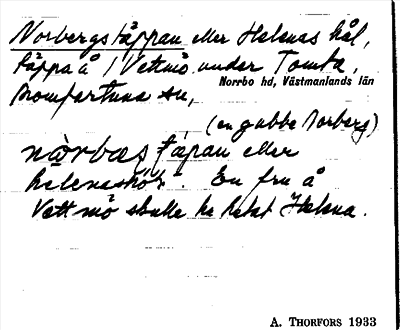 Norbergstäppan eller Helenas hål,
täppa å / Vettmö under Tomta,
Norrbo hd, Västmanlands län
Romfartuna sn,
(en gubbe Norberg)
nòrbæs täpan eller
helenashòl. En fru å
Vettmö skulle ha hetat Helena.
A. THORFORS 1933